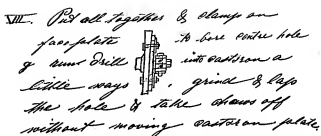 VII. Put all together & clamp on
faceplate to bore centre hole
& run drill into castiron a
little ways, grind & lap
the hole & take chaws off
without moving castiron plate